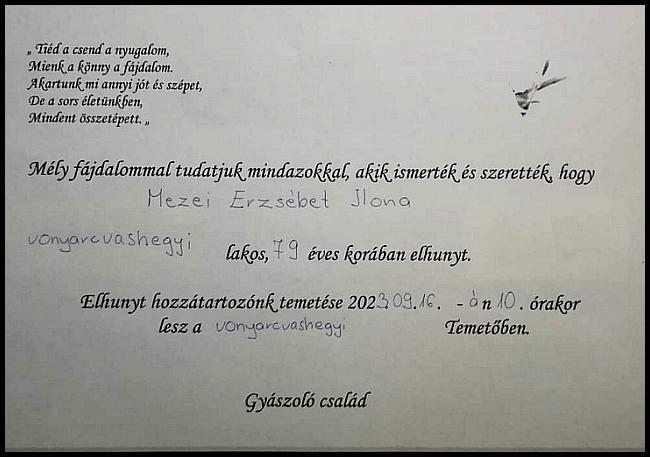 „ Tiéd a csend a nyugalom,
Mienk a könny a fájdalom.
Akartunk mi annyi jót és szépet,
De a sors életünkben,
Mindent összetépett. „
Mély fájdalommal tudatjuk mindazokkal, akik ismerték és szerették, hogy
Mezei Erzsébet Ilona
vonyarcvashegyi lakos, 79 éves korában elhunyt.
Elhunyt hozzátartozónk temetése 2023.09.16. - á n 10. órakor
lesz a vonyarcvashegyi Temetőben.
Gyászoló család